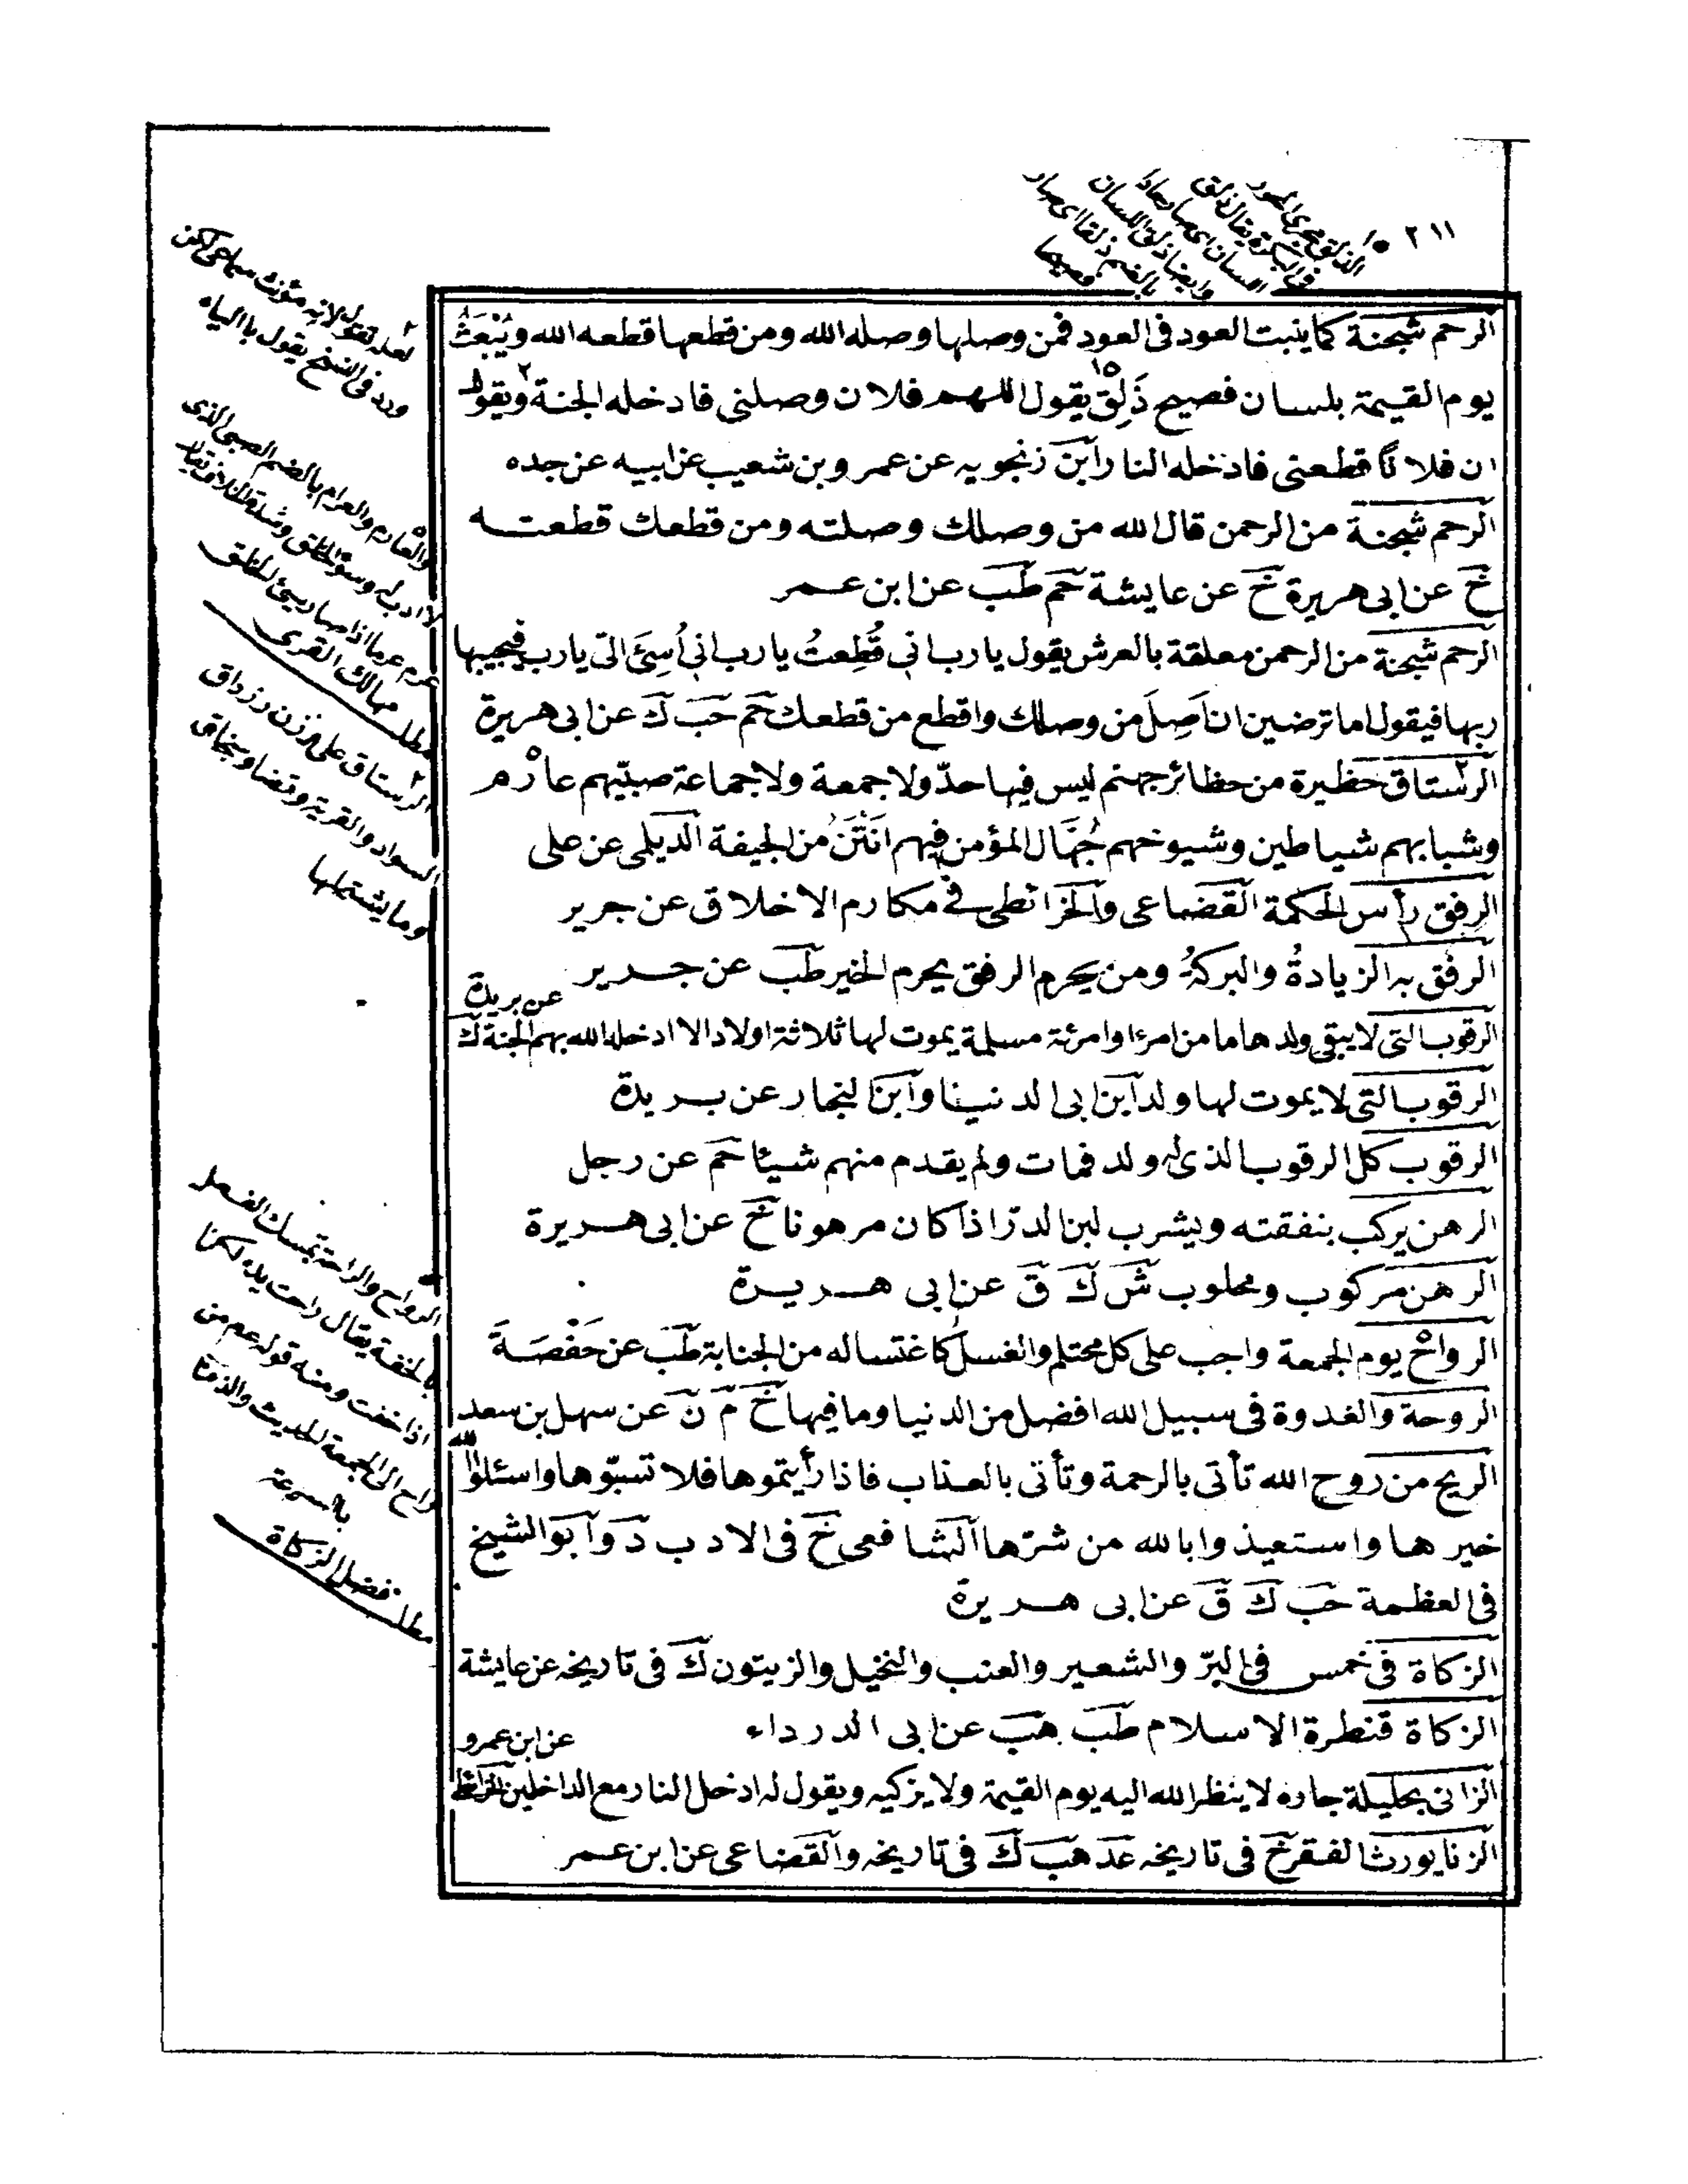 ٢١١
الرحم شجنة كما ينبت العود فى العود فمن وصلها وصله الله ومن قطعها قطعه الله ويُبْعَثُ
يوم القيمة بلسان فصيح ذَلِق يقول اللهم فلان وصلنى فادخله الجنة ويقول
ان فلانًا قطعنى فادخله النار ابن زنجويه عن عمرو بن شعيب عن ابيه عن جده
الرحم شجنة من الرحمن قال الله من وصلك وصلته ومن قطعك قطعته
خ عن ابى هريرة خ عن عايشة حم طب عن ابن عمر
الرحم شجنة من الرحمن معلقة بالعرش يقول يا رب انى قُطِعتُ يا رب انى اُسِئَ الى يا رب فيجيبها
ربها فيقول اما ترضين ان اَصِلَ من وصلك واقطع من قطعك حم حب ك عن ابى هريرة
الرستاق حظيرة من حظائر جهنم ليس فيها حدّ ولا جمعة ولا جماعة صبيّهم عارم
وشبابهم شياطين وشيوخهم جُهَّال المؤمن فيهم انتَنُ من الجيفة الديلمى عن على
الرفق رأس الحكمة القضاعى والخرائطى فى مكارم الاخلاق عن جرير
الرفق به الزيادةُ والبركةُ ومن يحرم الرفق يحرم الخير طب عن جرير
الرقوب التى لا يبقى ولدها ما من امرء او امرئة مسلمة يموت لها ثلاثة اولاد الا ادخله الله بهم الجنة ك عن بريدة
الرقوب التى لا يموت لها ولد ابن ابى الدنيا وابن النجار عن بريدة
الرقوب كل الرقوب الذى له ولد فمات ولم يقدم منهم شيئا حم عن رجل
الرهن يركب بنفقته ويشرب لبن الدرّ اذا كان مرهونا خ عن ابى هريرة
الرهن مركوب ومحلوب ش ك ق عن ابى هريرة
الرواح يوم الجمعة واجب على كل محتلم والغسل كاغتساله من الجنابة طب عن حَفْصَةَ
الروحة والغدوة فى سبيل الله افضل من الدنيا وما فيها خ م ن عن سهل بن سعد
الريح من روح الله تأتى بالرحمة وتأتى بالعذاب فاذا رأيتموها فلا تسبّوها واسئلوا الله
خيرها واستعيذوا بالله من شرّها الشافعى خ فى الادب د وابو الشيخ
فى العظمة حب ك ق عن ابى هريرة
الزكاة فى خمس فى البرّ والشعير والعنب والنخيل والزيتون ك فى تاريخه عن عايشة
الزكاة قنطرة الاسلام طب هب عن ابى الدرداء
الزانى بحليلة جاره لا ينظر الله اليه يوم القيمة ولا يزكيه ويقول له ادخل النار مع الداخلين الخرائطى عن ابن عمرو
الزنا يورث الفقر خ فى تاريخه عد هب ك فى تاريخه والقضاعى عن ابن عمر
لعله تقول لانه مؤنث سماعى لكن
ورد فى النسخ يقول بالياء
والعارم والعرام بالضم الصبى الذى
مطلب مهالك القرى
الرستاق على وزن رزداق
السواد والقرية
وما يشتملها
بالسرعة
مطلب فضل الزكاة